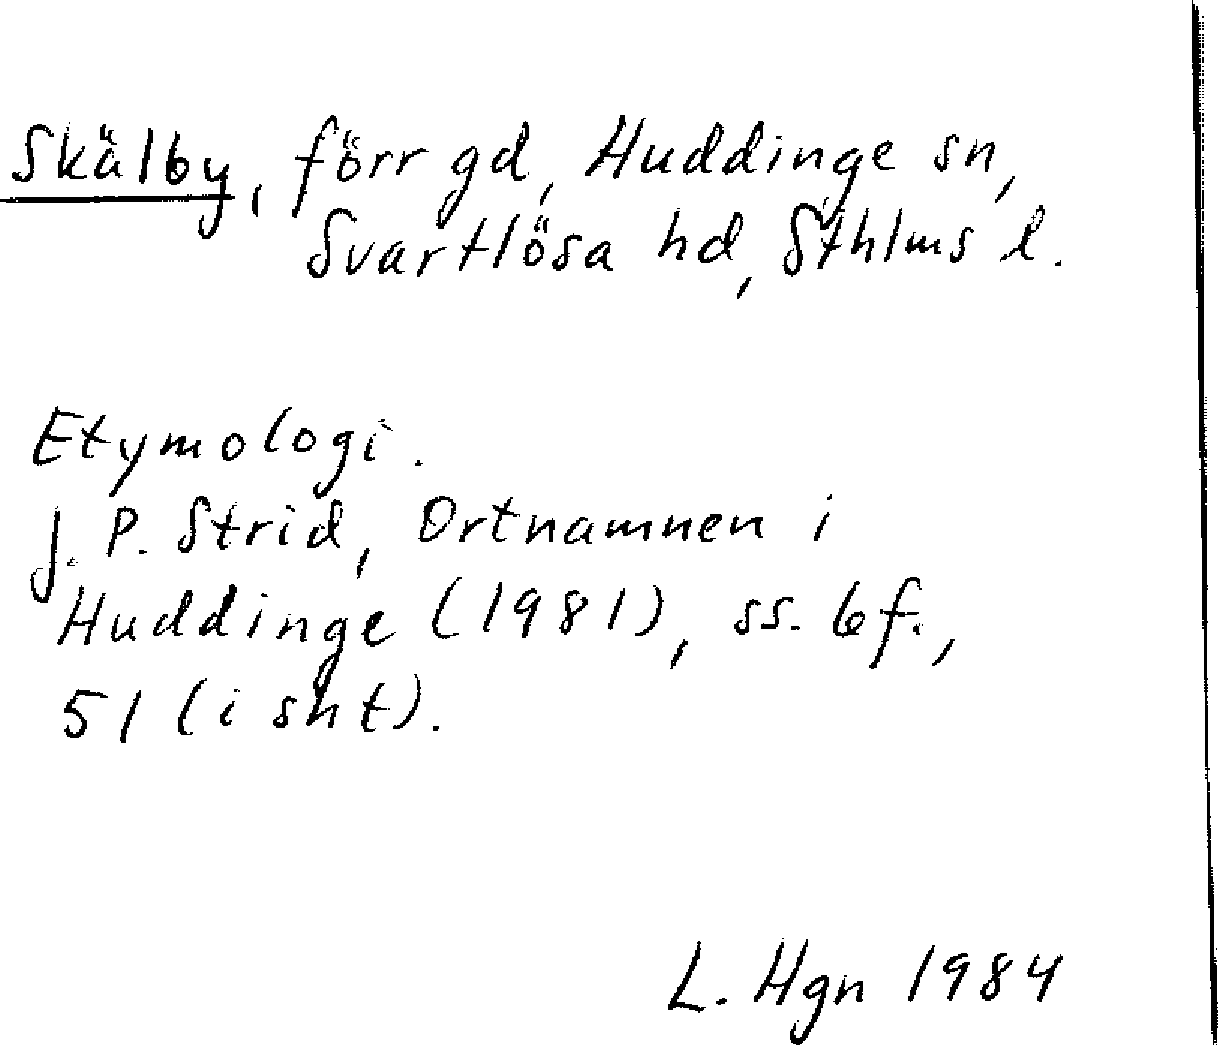 Skälby, förr gd, Huddinge sn,
Svartlösa hd, Sthlms l.
Etymologi.
J. P. Strid, Ortnamnen i
Huddinge (1981), ss. 6f.,
51 (i sht).
L. Hgn 1984